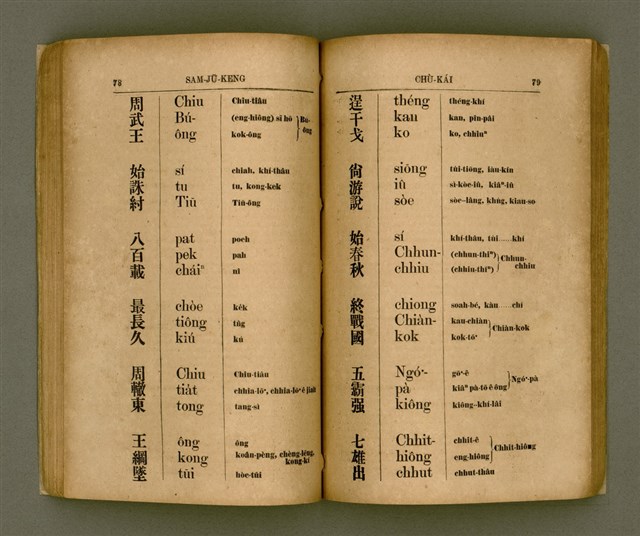 78 SAM-JŪ-KENG
周 Chiu Chiu-tiâu
武 Bú- (eng-hiông) sī hō Bú-ông
王 ông kok-ông
始 sí chiah, khí-thâu
誅 tu tu, kong-kek
紂 Tiū Tiū-ông
八 pat poeh
百 pek pah
載 cháiⁿ nî
最 chòe kek
長 tiông tn̂g
久 kiú kú
周 Chiu Chiu-tiâu
轍 tia̍t chhia-lō͘, chhia-lō͘ ê jiah
東 tong tang-sì
王 ông ông
綱 kong koân-pèng, chèng-lēng, kong-kí
墜 tūi hòe-tūi
CHÙ-KÁI 79
逞 théng théng-khí
干 kan kan, pîn-pâi
戈 ko ko, chhiuⁿ
尙 siōng tùi-tiōng, iàu-kín
游 iû sì-kòe-iû, kiâⁿ-iû
說 sòe sòe-lâng, khǹg, kian-so
始 sí khí-thâu, tùi......khí
春 Chhun- (chhun-thiⁿ) Chhun-chhiu
秋 chhiu (chhiu-thiⁿ)
終 chiong soah-bé, kàu......chí
戰 Chiàn- kau-chiàn Chiàn-kok
國 kok kok-tō͘
五 Ngó͘- gō͘-ê Ngó͘-pà
霸 pà kiâⁿ pà-tō ê ông
强 kiông kiông-khí-lâi
七 Chhit- chhit-ê Chhit-hiông
雄 hiông eng-hiông
出 chhut chhut-thâu